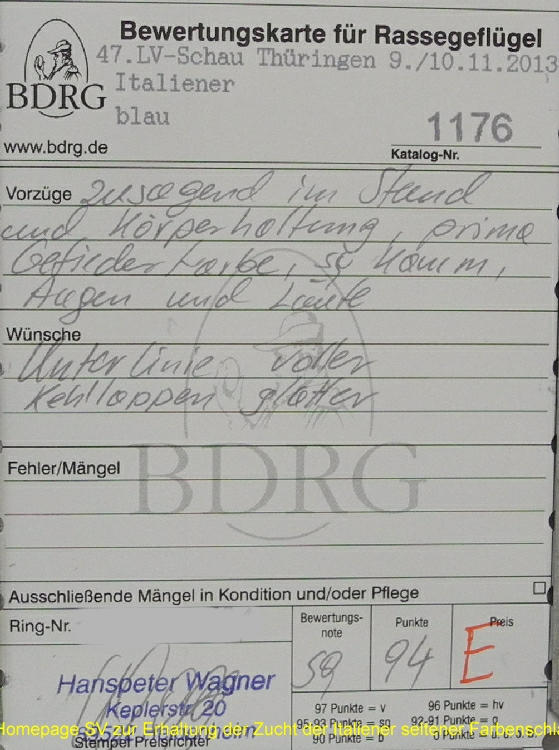 Bewertungskarte für Rassegeflügel
47.LV-Schau Thüringen 9./10.11.2013
Italiener
blau
BDRG
www.bdrg.de
1176
Katalog-Nr.
Vorzüge zusagend im Stand
und Körperhaltung, prima
Gefieder Farbe, sg Kamm,
Augen und Läufe
Wünsche
Unterlinie voller
Kehllappen glatter
BDRG
Fehler/Mängel
Ausschließende Mängel in Kondition und/oder Pflege
Ring-Nr.
Bewertungs-
note
Punkte
Preis
sg
94
E
Hanspeter Wagner
Keplerstr. 20
Stempel Preisrichter
97 Punkte = v
96 Punkte = hv
95-93 Punkte = sg
92-91 Punkte = g
90 Punkte = b
0 Punkte
Homepage SV zur Erhaltung der Zucht der Italiener seltener Farbenschl